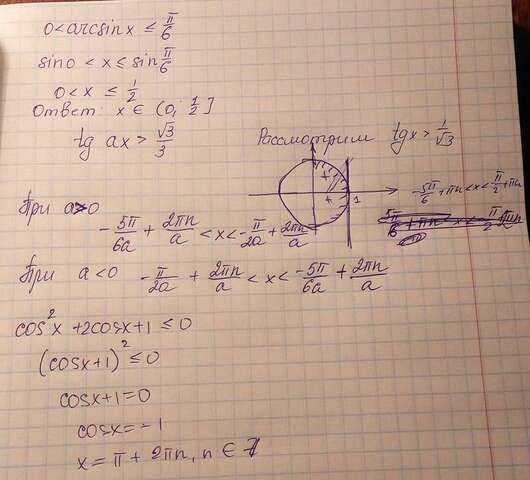 0 < arcsin x ≤ π/6
sin 0 < x ≤ sin π/6
0 < x ≤ 1/2
Ответ: x ∈ (0; 1/2]
tg ax > √3/3
Рассмотрим tg x > 1/√3
1
-5π/6 + πn < x < π/2 + πn
При a > 0
-5π/6a + 2πn/a < x < -π/2a + 2πn/a
При a < 0 -π/2a + 2πn/a < x < -5π/6a + 2πn/a
cos²x + 2cosx + 1 ≤ 0
(cosx + 1)² ≤ 0
cosx + 1 = 0
cosx = -1
x = π + 2πn, n ∈ Z